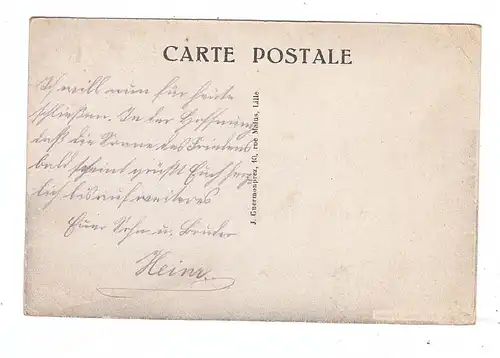 CARTE POSTALE
Ich will nun für heute
schließen. In der Hoffnung
daß die Sonne des Friedens
bald scheint grüßt Euch herz
lich bis auf weiteres
Euer Sohn u. Bruder
Heinr.
J. Guermonprez, 40, rue Malus, Lille